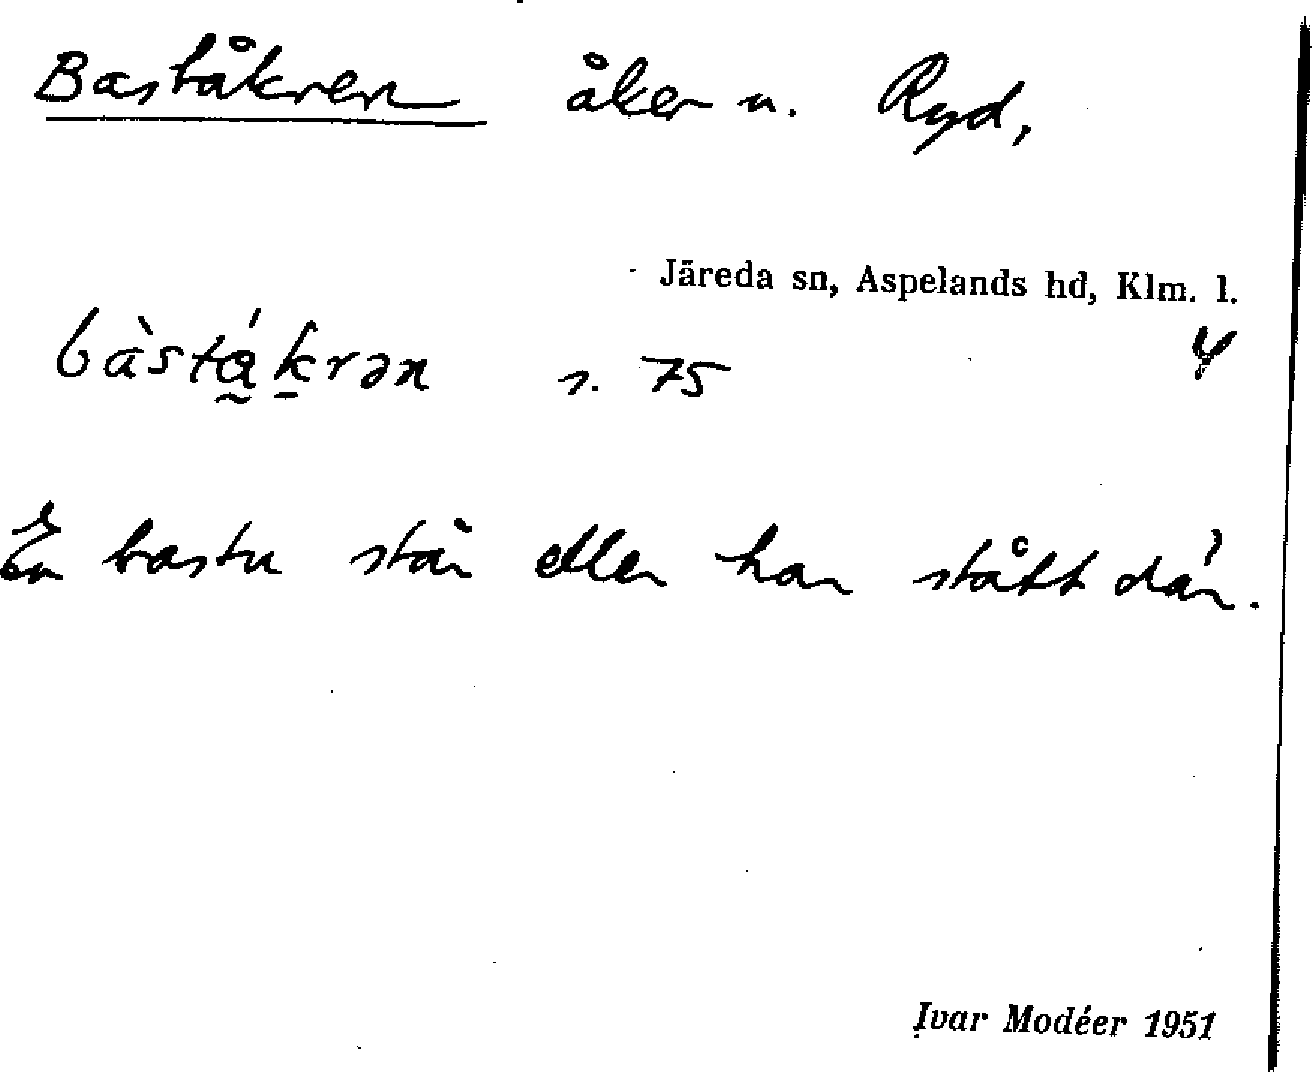 Baståkren åker n. Ryd,
Järeda sn, Aspelands hd, Klm. l.
4
bàstá̰ḵrən s. 75
En bastu står eller har stått där.
Ivar Modéer 1951